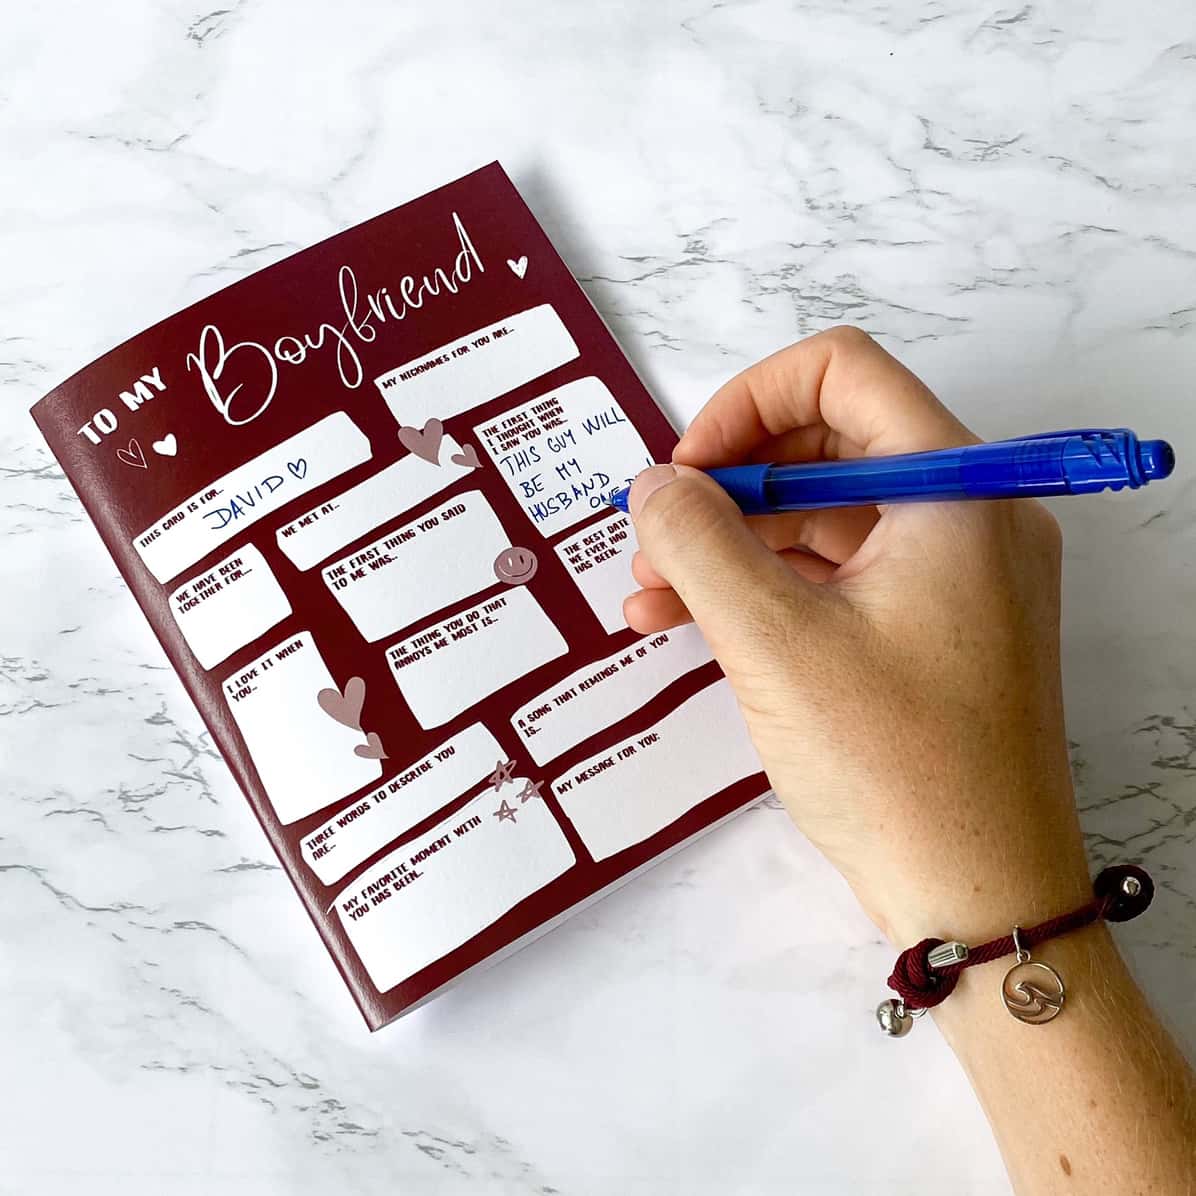 TO MY Boyfriend
MY NICKNAMES FOR YOU ARE...
THIS CARD IS FOR...
DAVID♡
WE MET AT...
THE FIRST THING
I THOUGHT WHEN
I SAW YOU WAS...
THIS GUY WILL
BE MY
HUSBAND
WE HAVE BEEN
TOGETHER FOR...
THE FIRST THING YOU SAID
TO ME WAS...
THE BEST DATE
WE EVER HAD
HAS BEEN...
I LOVE IT WHEN
YOU...
THE THING YOU DO THAT
ANNOYS ME MOST IS...
A SONG THAT REMINDS ME OF YOU
IS...
THREE WORDS TO DESCRIBE YOU
ARE...
MY MESSAGE FOR YOU:
MY FAVORITE MOMENT WITH
YOU HAS BEEN...